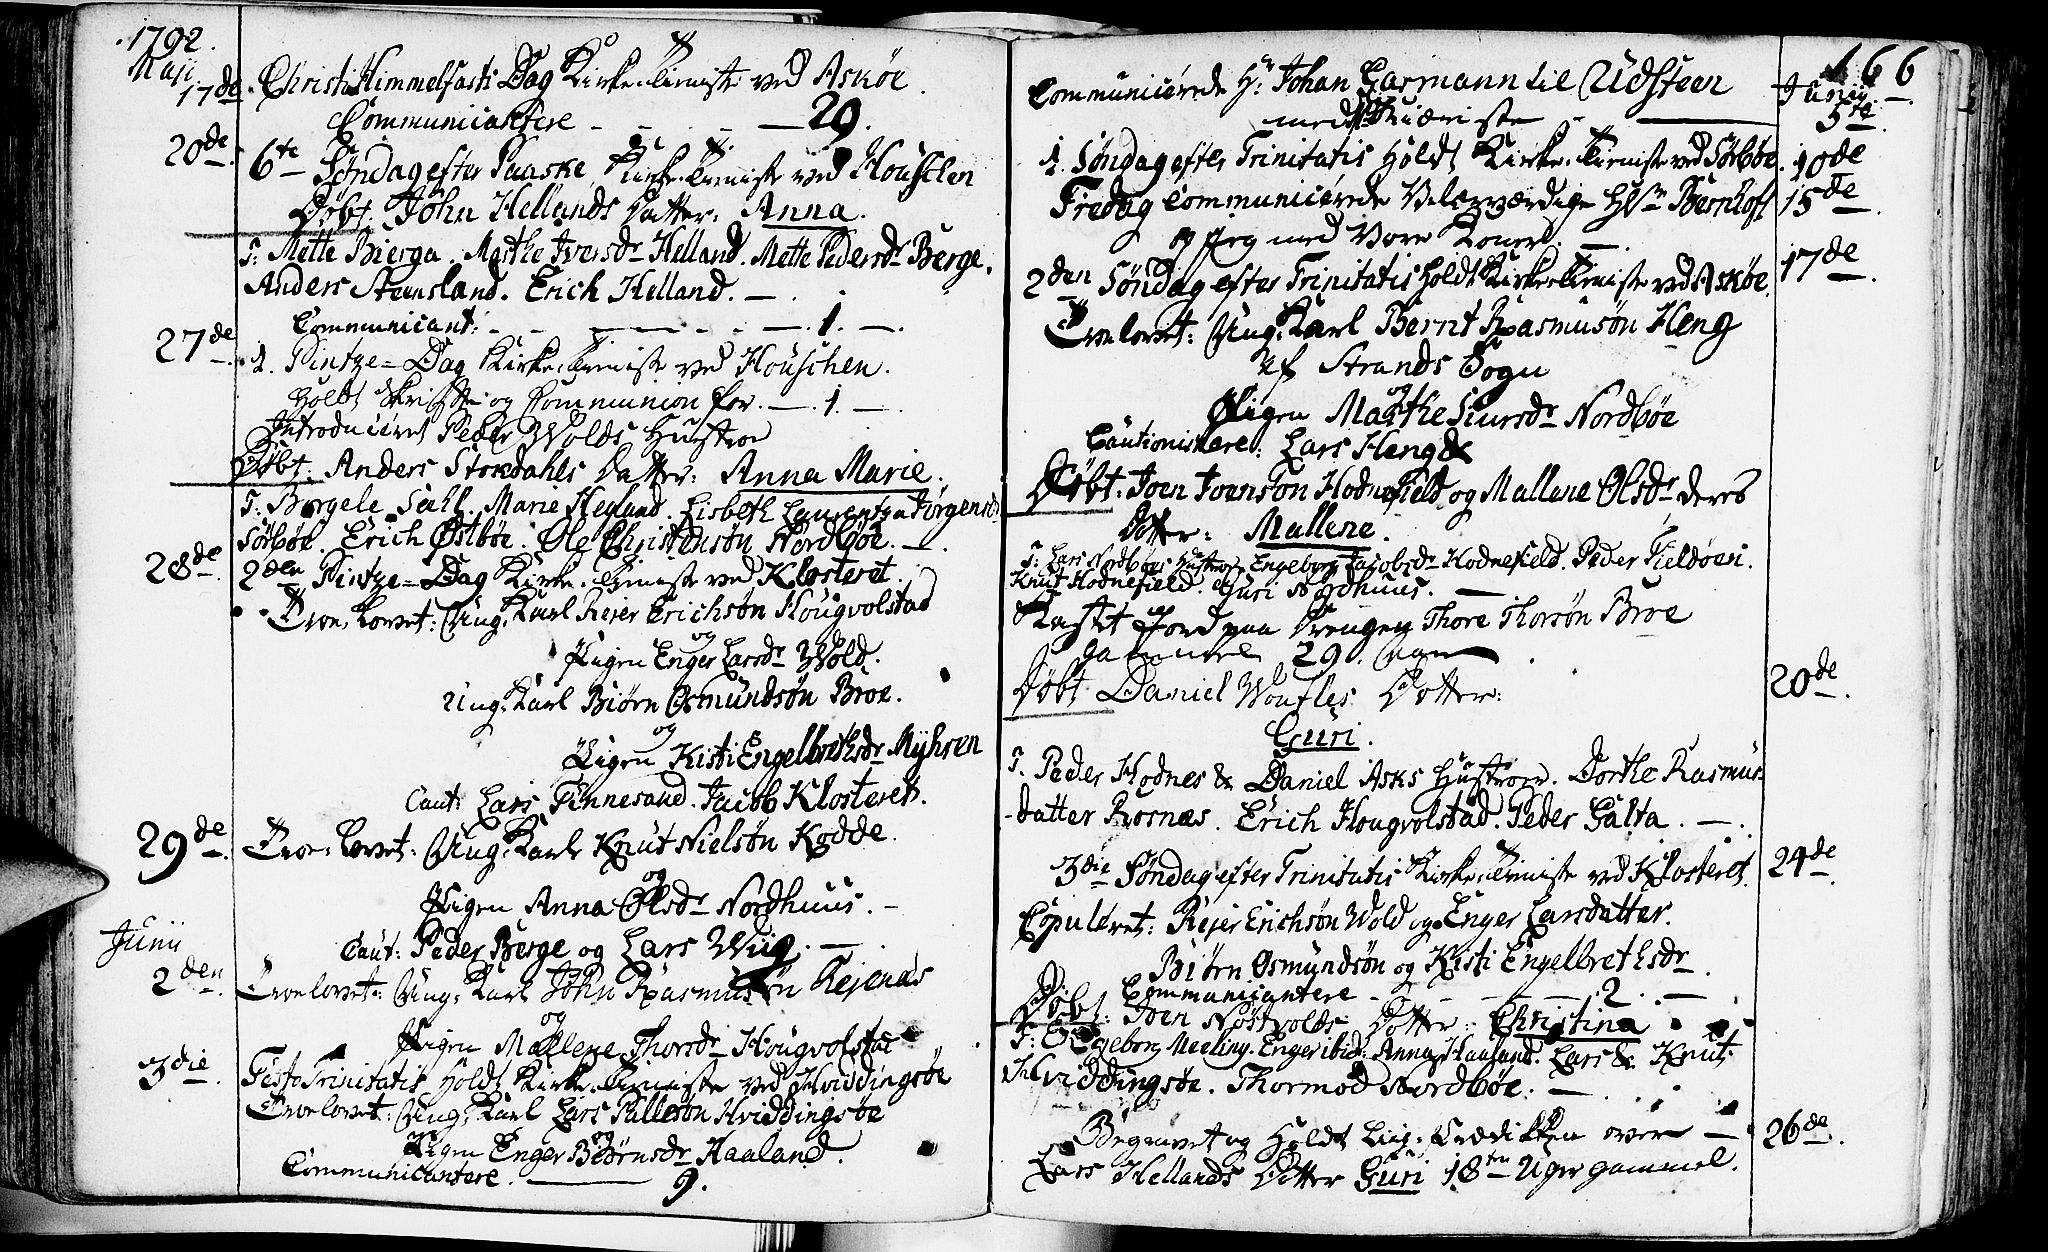 1792.
Maji
17de. Christi Himmelfarts Dag Kirke-Tieniste ved Askøe.
Communicantere - - - 29.
20de. 6te Søndag efter Paaske Kirke-Tieniste ved Houschen
Døbt: John Hellands Datter: Anna.
T: Mette Bierga. Marthe Iversdr Helland. Mette Pedersdr Berge.
Anders Steensland. Erich Helland. —.
Communicant: - - - 1. —.
27de. 1. Pintze-Dag Kirke-Tieniste ved Houschen.
Holdt Skrifte og Communion for. —. 1. —.
Introduceret Peder Wolds Hustroe
Døbt: Anders Stordahls Datter: Anna Marie.
T: Børgele Seahl. Marie Hegland. Lisbeth Laurentza Jørgens
Sørbøe. Erich Østbøe. Ole Christensøn Nordbøe. —.
28de. 2den Pintze-Dag Kirke-Tieniste ved Klosteret.
Troe-Lovet: Ung-Karl Reier Erichsøn Hougvolstad
og
Pigen Enger Larsdr Wold.
Ung-Karl Biørn Osmundsøn Broe.
og
Pigen Kisti Engelbrethsdr Myhren
Caut: Lars Finnesand. Jacob Klosteret.
29de. Troe-Lovet: Ung-Karl Knut Nielsøn Kodde.
og
Pigen Anna Olsdr Nordhuus. -
Caut: Peder Berge og Lars Wiig. —.
Junii
2den. Troelovet: Ung-Karl John Rasmusøn Rejenæs
og
Pigen Mallene Thorsdr Hougvolstad
3die. Festo Trinitatis Holdt Kirke-Tieniste ved Hviddingsøe
Troelovet: Ung-Karl Lars Pallesøn Hviddingsøe
og
Pigen Enger Biørnsdr Haaland.
Communicantere. — 9.
166
Communicerede Hr: Johan Garmann til Udsteen Junii
med - 5te.
1. Søndag efter Trinitatis Holdt Kirke-Tieniste ved Sørbøe. 10de
Fredag Communicerede Velærværdige Hr Bernhoft 15de.
og Jeg med Vore Koner. —.
2den Søndag efter Trinitatis Holdt Kirke-Tieniste ved Askøe. 17de.
Troelovet: Ung-Karl Bernt Rasmusøn Heng
af Strands Sogn
og
Pigen Marthe Siursdr Nordbøe
Cautionistere: Lars Heng &
Døbt: Joen Joensøn Hodnefield og Mallene Olsdr deres
Datter: Mallene.
T: Lars Nordbøes Hustroe. Engeborg Jacobsdr Hodnefield. Peder Fieldøen.
Knut Hodnefield. Guri Nordhuus. —
Kastet Jord paa Drengen Thore Thorsøn Broe
gammel 29. Aar.
Døbt Daniel Woules Datter: 20de.
Guri.
T. Peder Hodnes & Daniel Asks Hustroer. Dorthe Rasmus-
-datter Rornæs. Erich Hougvolstad. Peder Galta. —.
3die Søndag efter Trinitatis Kirke-Tieniste ved Klosteret. 24de.
Copuleret: Rejer Erichsøn Wold og Enger Larsdatter.
Biørn Osmundsøn og Kisti Engelbrethsdr.
Communicantere - - - 2. —
Døbt: Joen Nøstvolds Datter: Christina
T: Engeborg Meeling. Enger ibid: Anna Haaland. Lars & Knut
Hviddingsøe. Thormod Nordbøe. —.
Begravet og Holdt Liig-Prædicken over — 26de.
Lars Hellands Datter Guri 18ten Uger gammel.